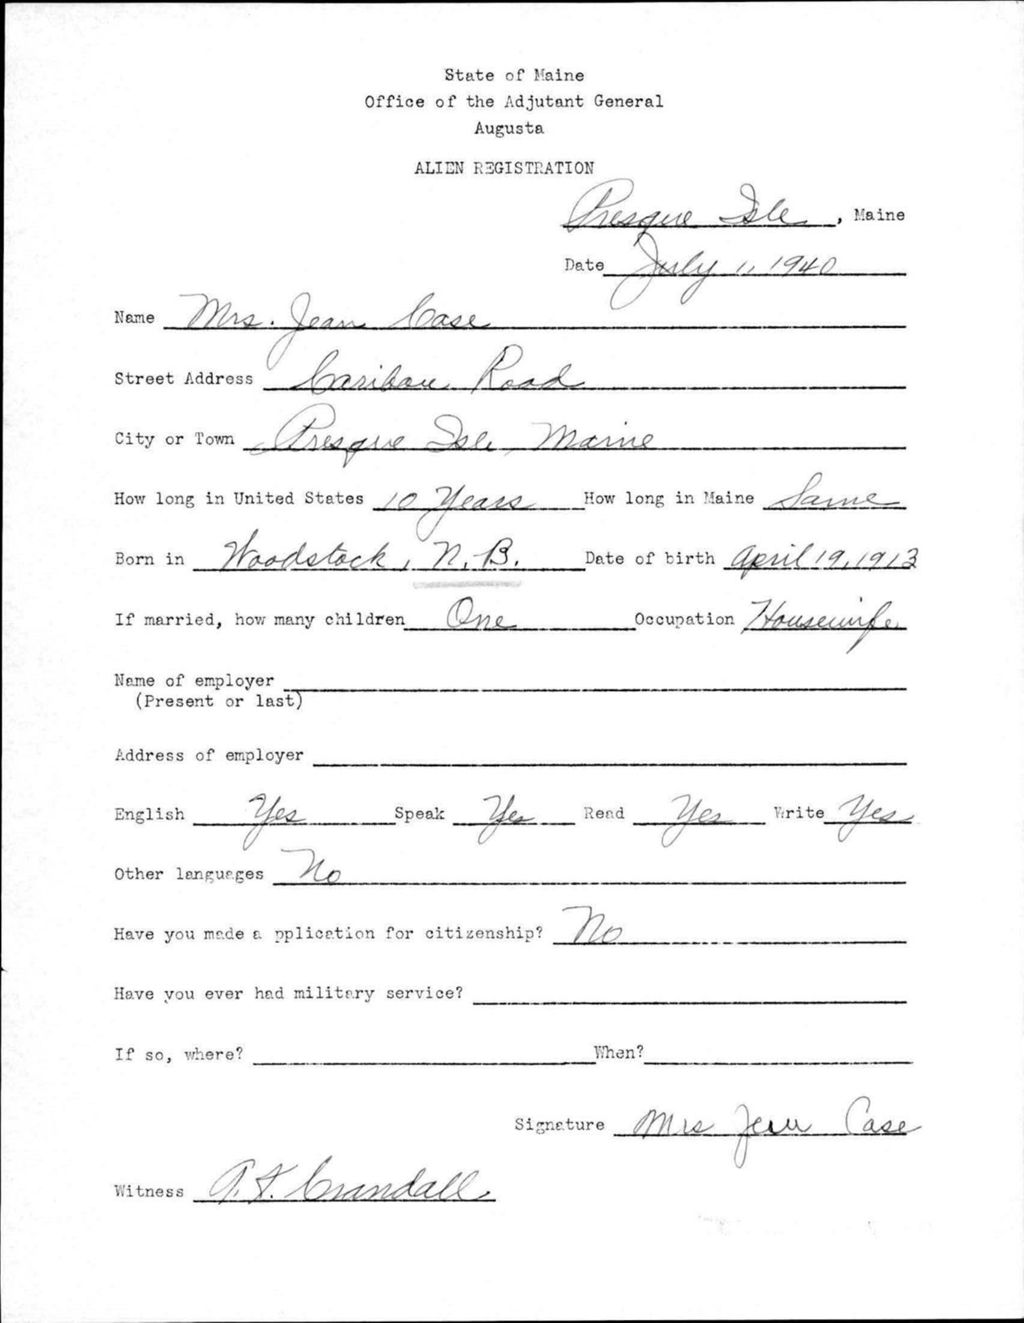 State of Maine
Office of the Adjutant General
Augusta
ALIEN REGISTRATION
Presque Isle, Maine
Date July 1, 1940
Name Mrs. Jean Case
Street Address Caribou Road
City or Town Presque Isle, Maine
How long in United States 10 Years How long in Maine Same
Born in Woodstock, N.B. Date of birth April 19, 1913
If married, how many children One Occupation Housewife
Name of employer
(Present or last)
Address of employer
English Yes Speak Yes Read Yes Write Yes
Other languages No
Have you made a pplication for citizenship? No
Have you ever had military service?
If so, where? When?
Signature Mrs Jean Case
Witness A.F. Crandall